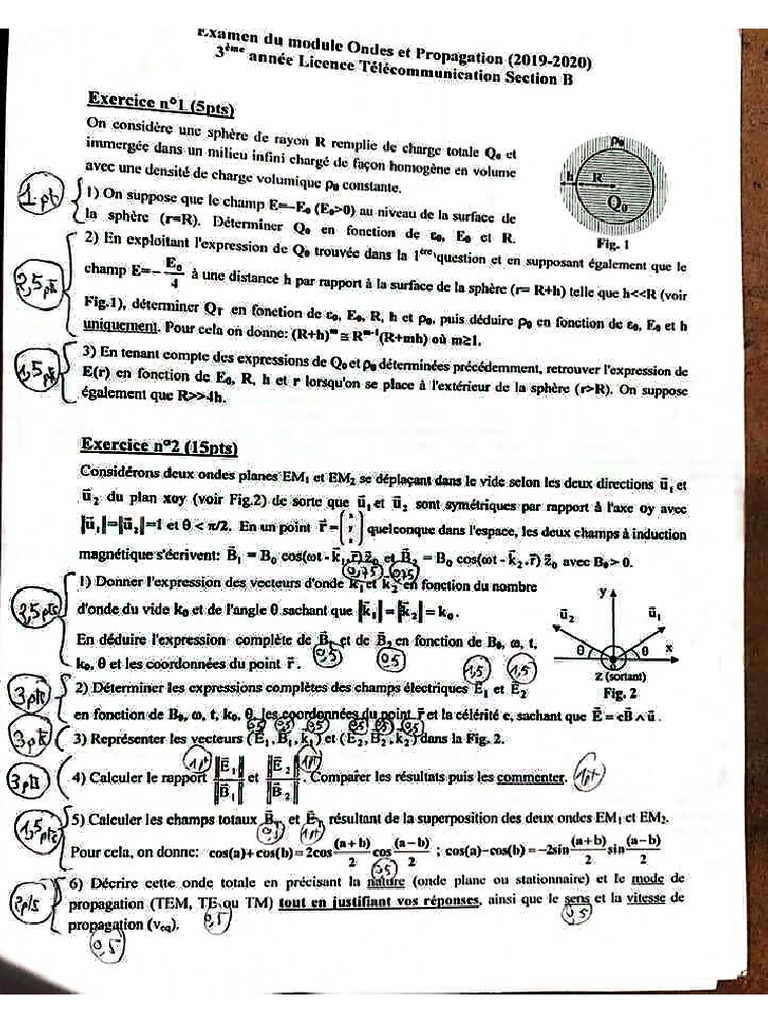 Examen du module Ondes et Propagation (2019-2020)
3ème année Licence Télécommunication Section B
Exercice n°1 (5pts)
On considère une sphère de rayon R remplie de charge totale Q₀ et
immergée dans un milieu infini chargé de façon homogène en volume
avec une densité de charge volumique ρ₀ constante.
1pt
1) On suppose que le champ E=-E₀ (E₀>0) au niveau de la surface de
la sphère (r=R). Déterminer Q₀ en fonction de ε₀, E₀ et R.
ρ₀
h R
Q₀
Fig. 1
2) En exploitant l'expression de Q₀ trouvée dans la 1ère question et en supposant également que le
2,5pts
champ E=-E₀/4 à une distance h par rapport à la surface de la sphère (r= R+h) telle que h<<R (voir
Fig.1), déterminer Q_T en fonction de ε₀, E₀, R, h et ρ₀, puis déduire ρ₀ en fonction de ε₀, E₀ et h
uniquement. Pour cela on donne: (R+h)ᵐ ≅ Rᵐ⁻¹(R+mh) où m≥1.
1,5pts
3) En tenant compte des expressions de Q₀ et ρ₀ déterminées précédemment, retrouver l'expression de
E(r) en fonction de E₀, R, h et r lorsqu'on se place à l'extérieur de la sphère (r>R). On suppose
également que R>>4h.
Exercice n°2 (15pts)
Considérons deux ondes planes EM₁ et EM₂ se déplaçant dans le vide selon les deux directions u⃗₁ et
u⃗₂ du plan xoy (voir Fig.2) de sorte que u⃗₁ et u⃗₂ sont symétriques par rapport à l'axe oy avec
|u⃗₁|=|u⃗₂|=1 et θ < π/2. En un point r⃗=(x y z) quelconque dans l'espace, les deux champs à induction
magnétique s'écrivent: B⃗₁ = B₀ cos(ωt - k⃗₁.r⃗) z⃗₀ et B⃗₂ = B₀ cos(ωt - k⃗₂.r⃗) z⃗₀ avec B₀> 0.
0,75 0,75
2,5pts
1) Donner l'expression des vecteurs d'onde k⃗₁ et k⃗₂ en fonction du nombre
d'onde du vide k₀ et de l'angle θ sachant que |k⃗₁|=|k⃗₂|= k₀.
En déduire l'expression complète de B⃗₁ et de B⃗₂ en fonction de B₀, ω, t,
0,5 0,5
k₀, θ et les coordonnées du point r⃗.
y
u⃗₂ u⃗₁
θ θ x
Z (sortant)
Fig. 2
1,5 1,5
3pts
2) Déterminer les expressions complètes des champs électriques E⃗₁ et E⃗₂
en fonction de B₀, ω, t, k₀, θ, les coordonnées du point r⃗ et la célérité c, sachant que E⃗ = cB⃗ ∧ u⃗.
0,5 0,5 0,5 0,5 0,5 0,5
3pts
3) Représenter les vecteurs (E⃗₁, B⃗₁, k⃗₁) et (E⃗₂, B⃗₂, k⃗₂) dans la Fig. 2.
3pts
4) Calculer le rapport ‖E⃗₁‖/‖B⃗₁‖ et ‖E⃗₂‖/‖B⃗₂‖. Comparer les résultats puis les commenter.
1pt 1pt 1pt
1,5pts
5) Calculer les champs totaux B⃗_T et E⃗_T résultant de la superposition des deux ondes EM₁ et EM₂.
1pt
Pour cela, on donne: cos(a)+cos(b)=2cos (a+b)/2 cos (a-b)/2 ; cos(a)-cos(b)=-2sin (a+b)/2 sin (a-b)/2
0,5
2pts
6) Décrire cette onde totale en précisant la nature (onde plane ou stationnaire) et le mode de
propagation (TEM, TE ou TM) tout en justifiant vos réponses, ainsi que le sens et la vitesse de
0,5 0,5
propagation (v_eq).
0,5